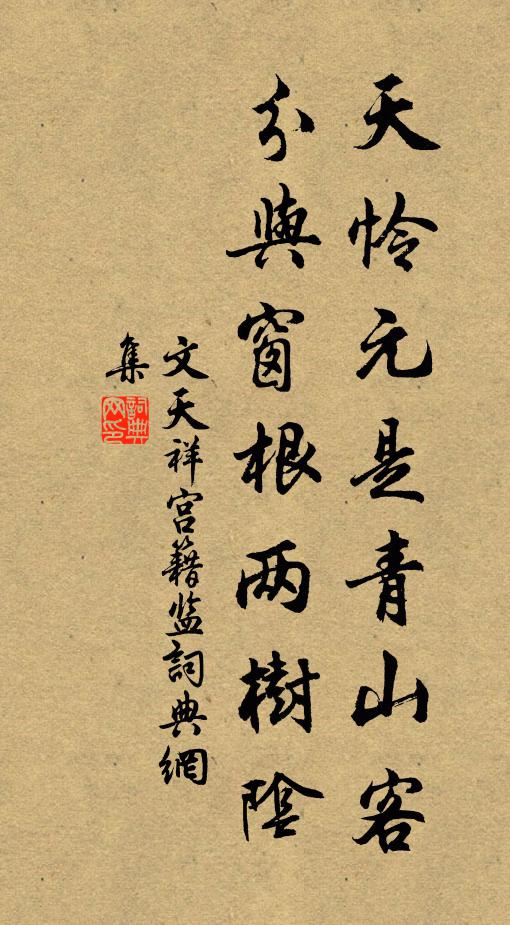 天怜元是青山客
分與窗根两樹陰
文天祥宫籍监詞典網
集
詞典网印